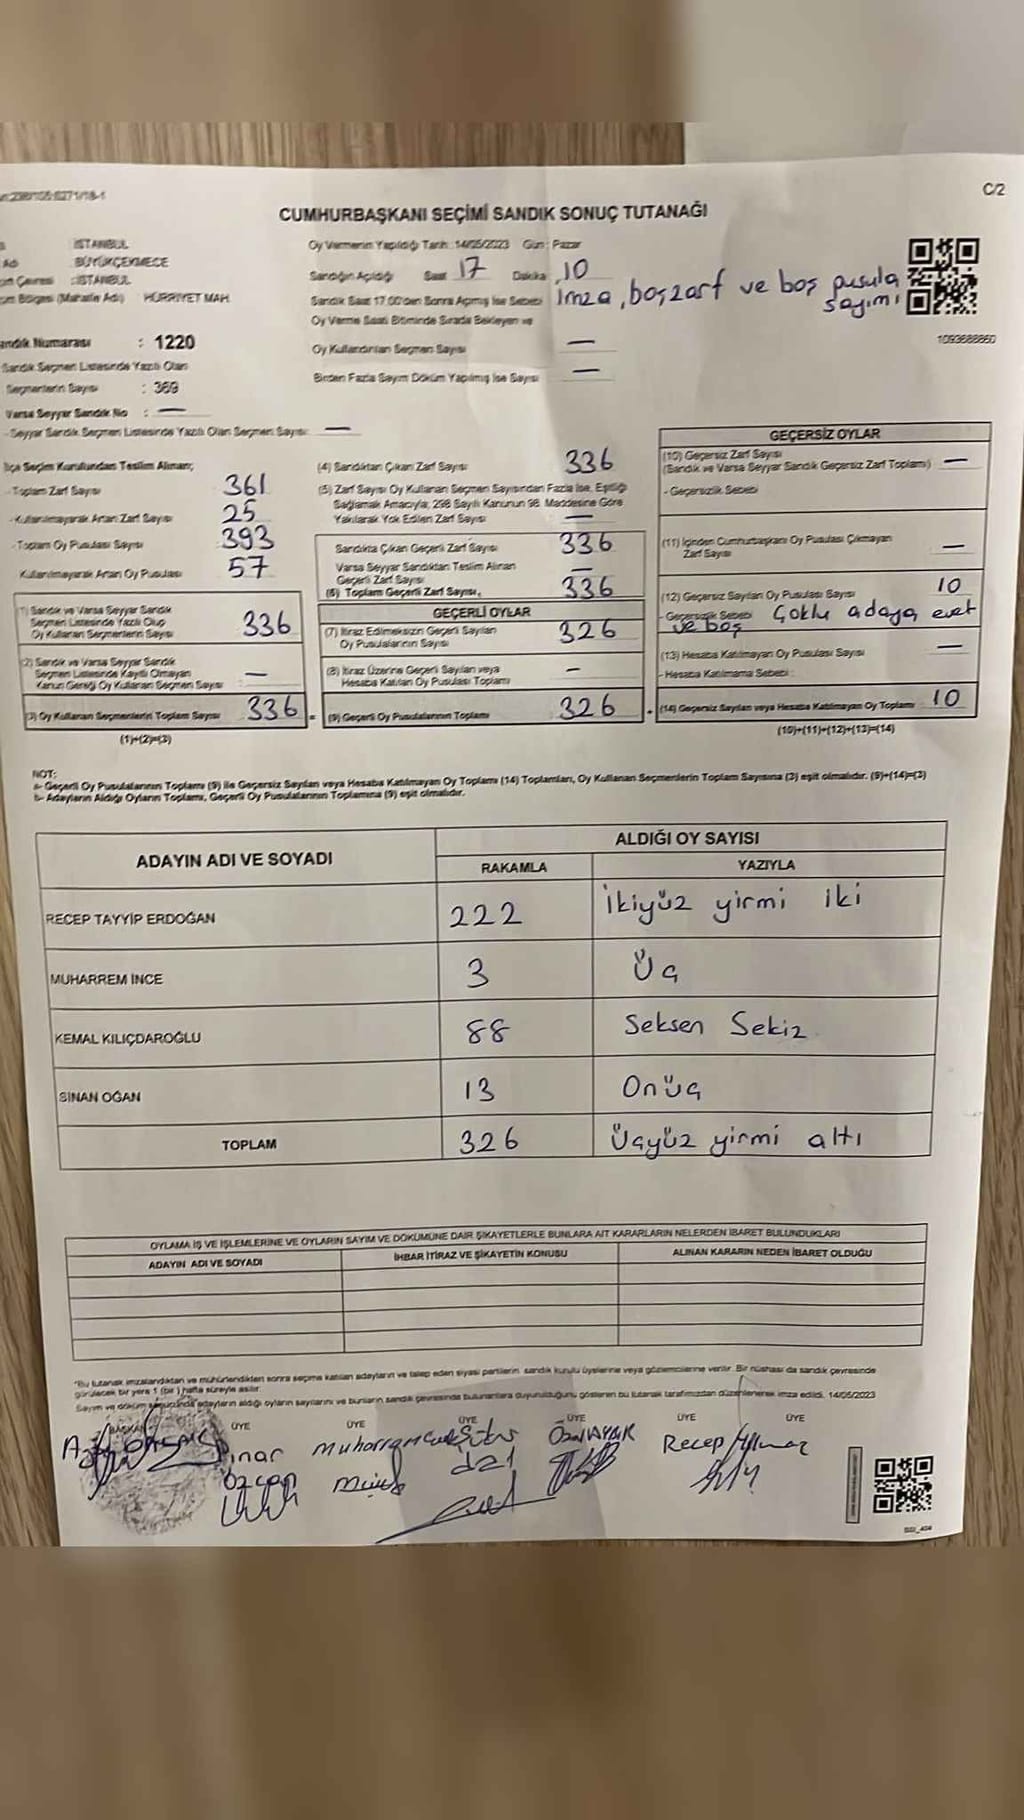 C/2
CUMHURBAŞKANI SEÇİMİ SANDIK SONUÇ TUTANAĞI
İSTANBUL
Adı BÜYÜKÇEKMECE
Çevresi : İSTANBUL
Bölgesi (Mahalle Adı) HÜRRİYET MAH.
Sandık Numarası : 1220
Sandık Seçmen Listesinde Yazılı Olan
Seçmenlerin Sayısı : 369
Varsa Seyyar Sandık No : —
-Seyyar Sandık Seçmen Listesinde Yazılı Olan Seçmen Sayısı: —
Oy Vermenin Yapıldığı Tarih : 14/05/2023 Gün : Pazar
Sandığın Açıldığı Saat 17 Dakika 10
Sandık Saat 17.00'den Sonra Açılmış İse Sebebi İmza, boş zarf ve boş pusula sayımı
Oy Verme Saati Bitiminde Sırada Bekleyen ve
Oy Kullandırılan Seçmen Sayısı —
Birden Fazla Sayım Döküm Yapılmış İse Sayısı —
1093688860
İlçe Seçim Kurulundan Teslim Alınan;
-Toplam Zarf Sayısı 361
-Kullanılmayarak Artan Zarf Sayısı 25
-Toplam Oy Pusulası Sayısı 393
Kullanılmayarak Artan Oy Pusulası 57
(1) Sandık ve Varsa Seyyar Sandık
Seçmen Listesinde Yazılı Olup
Oy Kullanan Seçmenlerin Sayısı 336
(2) Sandık ve Varsa Seyyar Sandık
Seçmen Listesinde Kayıtlı Olmayan
Kanun Gereği Oy Kullanan Seçmen Sayısı : —
(3) Oy Kullanan Seçmenlerin Toplam Sayısı 336 =
(1)+(2)=(3)
(4) Sandıktan Çıkan Zarf Sayısı 336
(5) Zarf Sayısı Oy Kullanan Seçmen Sayısından Fazla İse, Eşitliği
Sağlamak Amacıyla, 298 Sayılı Kanunun 98. Maddesine Göre
Yakılarak Yok Edilen Zarf Sayısı —
Sandıkta Çıkan Geçerli Zarf Sayısı 336
Varsa Seyyar Sandıktan Teslim Alınan
Geçerli Zarf Sayısı —
(6) Toplam Geçerli Zarf Sayısı, 336
GEÇERLİ OYLAR
(7) İtiraz Edilmeksizin Geçerli Sayılan
Oy Pusulalarının Sayısı 326
(8) İtiraz Üzerine Geçerli Sayılan veya
Hesaba Katılan Oy Pusulası Toplamı —
(9) Geçerli Oy Pusulalarının Toplamı 326 +
GEÇERSİZ OYLAR
(10) Geçersiz Zarf Sayısı —
(Sandık ve Varsa Seyyar Sandık Geçersiz Zarf Toplamı)
- Geçersizlik Sebebi
(11) İçinden Cumhurbaşkanı Oy Pusulası Çıkmayan
Zarf Sayısı —
(12) Geçersiz Sayılan Oy Pusulası Sayısı 10
- Geçersizlik Sebebi Çoklu adaya evet
ve boş
(13) Hesaba Katılmayan Oy Pusulası Sayısı —
- Hesaba Katılmama Sebebi :
(14) Geçersiz Sayılan veya Hesaba Katılmayan Oy Toplamı 10
(10)+(11)+(12)+(13)=(14)
NOT:
a- Geçerli Oy Pusulalarının Toplamı (9) ile Geçersiz Sayılan veya Hesaba Katılmayan Oy Toplamı (14) Toplamları, Oy Kullanan Seçmenlerin Toplam Sayısına (3) eşit olmalıdır. (9)+(14)=(3)
b- Adayların Aldığı Oyların Toplamı, Geçerli Oy Pusulalarının Toplamına (9) eşit olmalıdır.
ADAYIN ADI VE SOYADI ALDIĞI OY SAYISI
RAKAMLA YAZIYLA
RECEP TAYYİP ERDOĞAN 222 İkiyüz yirmi iki
MUHARREM İNCE 3 Üç
KEMAL KILIÇDAROĞLU 88 Seksen Sekiz
SİNAN OĞAN 13 Onüç
TOPLAM 326 Üçyüz yirmi altı
OYLAMA İŞ VE İŞLEMLERİNE VE OYLARIN SAYIM VE DÖKÜMÜNE DAİR ŞİKAYETLERLE BUNLARA AİT KARARLARIN NELERDEN İBARET BULUNDUKLARI
ADAYIN ADI VE SOYADI İHBAR İTİRAZ VE ŞİKAYETİN KONUSU ALINAN KARARIN NEDEN İBARET OLDUĞU
*Bu tutanak imzalandıktan ve mühürlendikten sonra seçime katılan adayların ve talep eden siyasi partilerin sandık kurulu üyelerine veya gözlemcilerine verilir. Bir nüshası da sandık çevresinde
görülecek bir yere 1 (bir) hafta süreyle asılır.
Sayım ve döküm sonucunda adayların aldığı oyların sayılarını ve bunların sandık çevresinde bulunanlara duyurulduğunu gösteren bu tutanak tarafımızdan düzenlenerek imza edildi. 14/05/2023
BAŞKAN ÜYE ÜYE ÜYE ÜYE ÜYE ÜYE
Pınar Özcan
Muharrem
Recep Yılmaz